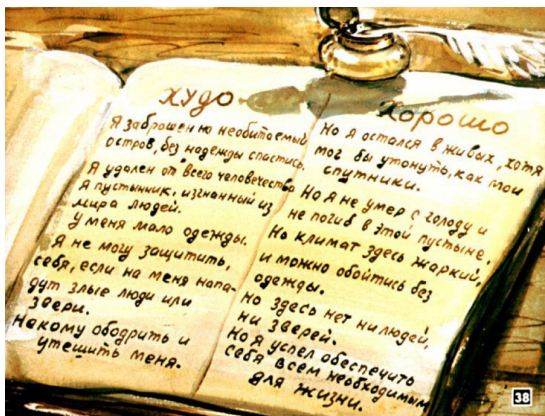 худо
Я заброшен на необитаемый
остров, без надежды спастись.
Я удален от всего человечества
Я пустынник, изгнанный из
мира людей.
У меня мало одежды.
Я не могу защитить
себя, если на меня напа-
дут злые люди или
звери.
Некому ободрить и
утешить меня.
хорошо
Но я остался в живых, хотя
мог бы утонуть, как мои
спутники.
Но я не умер с голоду и
не погиб в этой пустыне.
Но климат здесь жаркий,
и можно обойтись без
одежды.
Но здесь нет ни людей,
ни зверей.
Но я успел обеспечить
себя всем необходимым
для жизни.
38